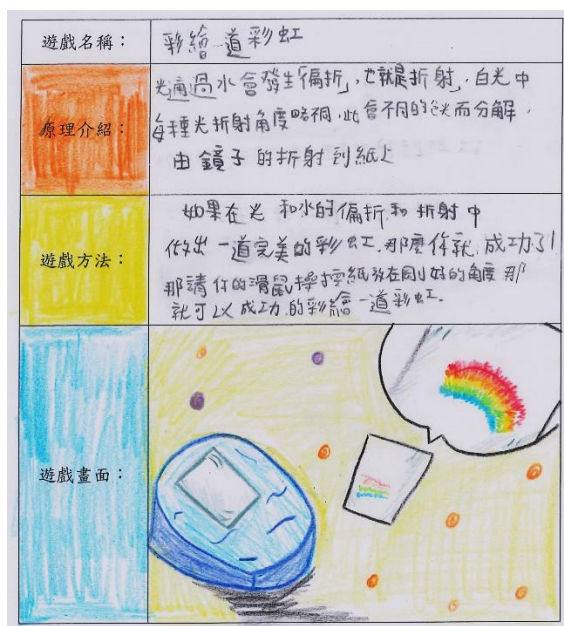 遊戲名稱：
彩繪一道彩虹
原理介紹：
光通過水會發生「偏折」,也就是折射」,白光中
每種光折射角度略不同,此會不同的色光而分解,
由鏡子的折射到紙上
遊戲方法：
如果在光和水的偏折和折射中
做出一道完美的彩虹,那麼你就成功了!
那請你的滑鼠操控紙放在剛好的角度那
就可以成功的彩繪一道彩虹.
遊戲畫面：